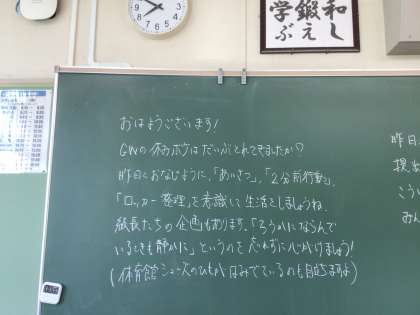 学 鍛 和
ぶ え し
おはようございます!
GWの休みボケはだいぶとれてきましたか?
昨日とおなじように、「あいさつ」、「2分前行動」、
「ロッカー整理」を意識して生活をしましょうね。
級長たちの企画もあります、「ろうかにならんで
いるときも静かに」というのを忘れずに心がけましょう!
(体育館シューズのひもが
でているのも目立ちますよ)
昨日
提出
こうい
みん